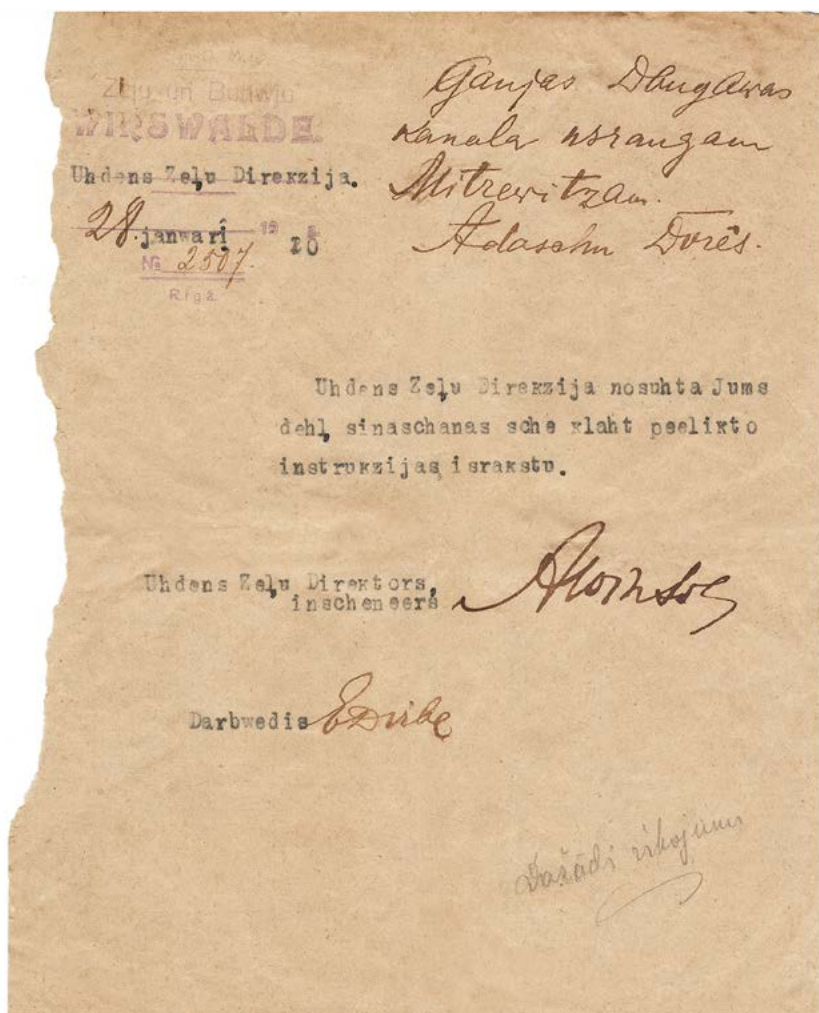 Zeļu un Buhwju
WIRSWALDE
Uhdens Zeļu Direkzija.
28. janwarî 19 20
№ 2507.
Rīgā.
Gaujas Daugawas
kanala usraugam
Mitrewitzam.
Adaschu Dorēs.
Uhdens Zeļu Direkzija nosuhta Jums
dehļ sinaschanas sche klaht peelikto
instrukzijas israkstu.
Uhdens Zeļu Direktors,
inscheneers
Darbwedis
Dažādi rīkojumi